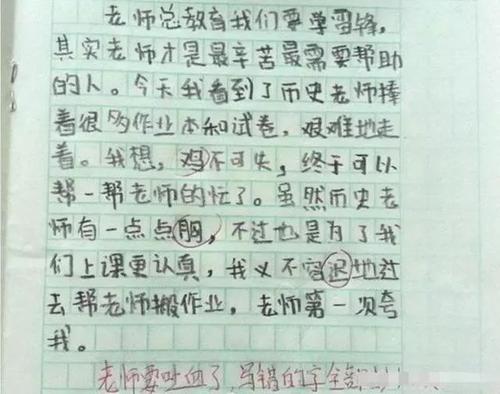 老师总教育我们要学雷锋,
其实老师才是最辛苦最需要帮助
的人。今天我看到了历史老师捧
着很多作业本和试卷,艰难地走
着。我想,鸡不可失,终于可以
帮一帮老师的忙了。虽然历史老
师有一点点胸,不过也是为了我
们上课更认真,我义不容迟地过
去帮老师搬作业,老师第一次夸
我。
老师要吐血了,写错的字全部